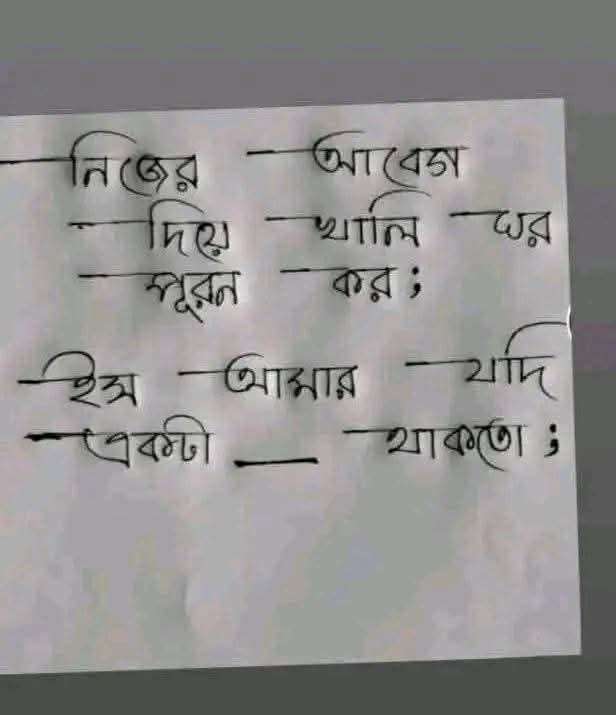 নিজের আবেগ
দিয়ে খালি ঘর
পূরন কর;
ইস আমার যদি
একটা __ থাকতো;